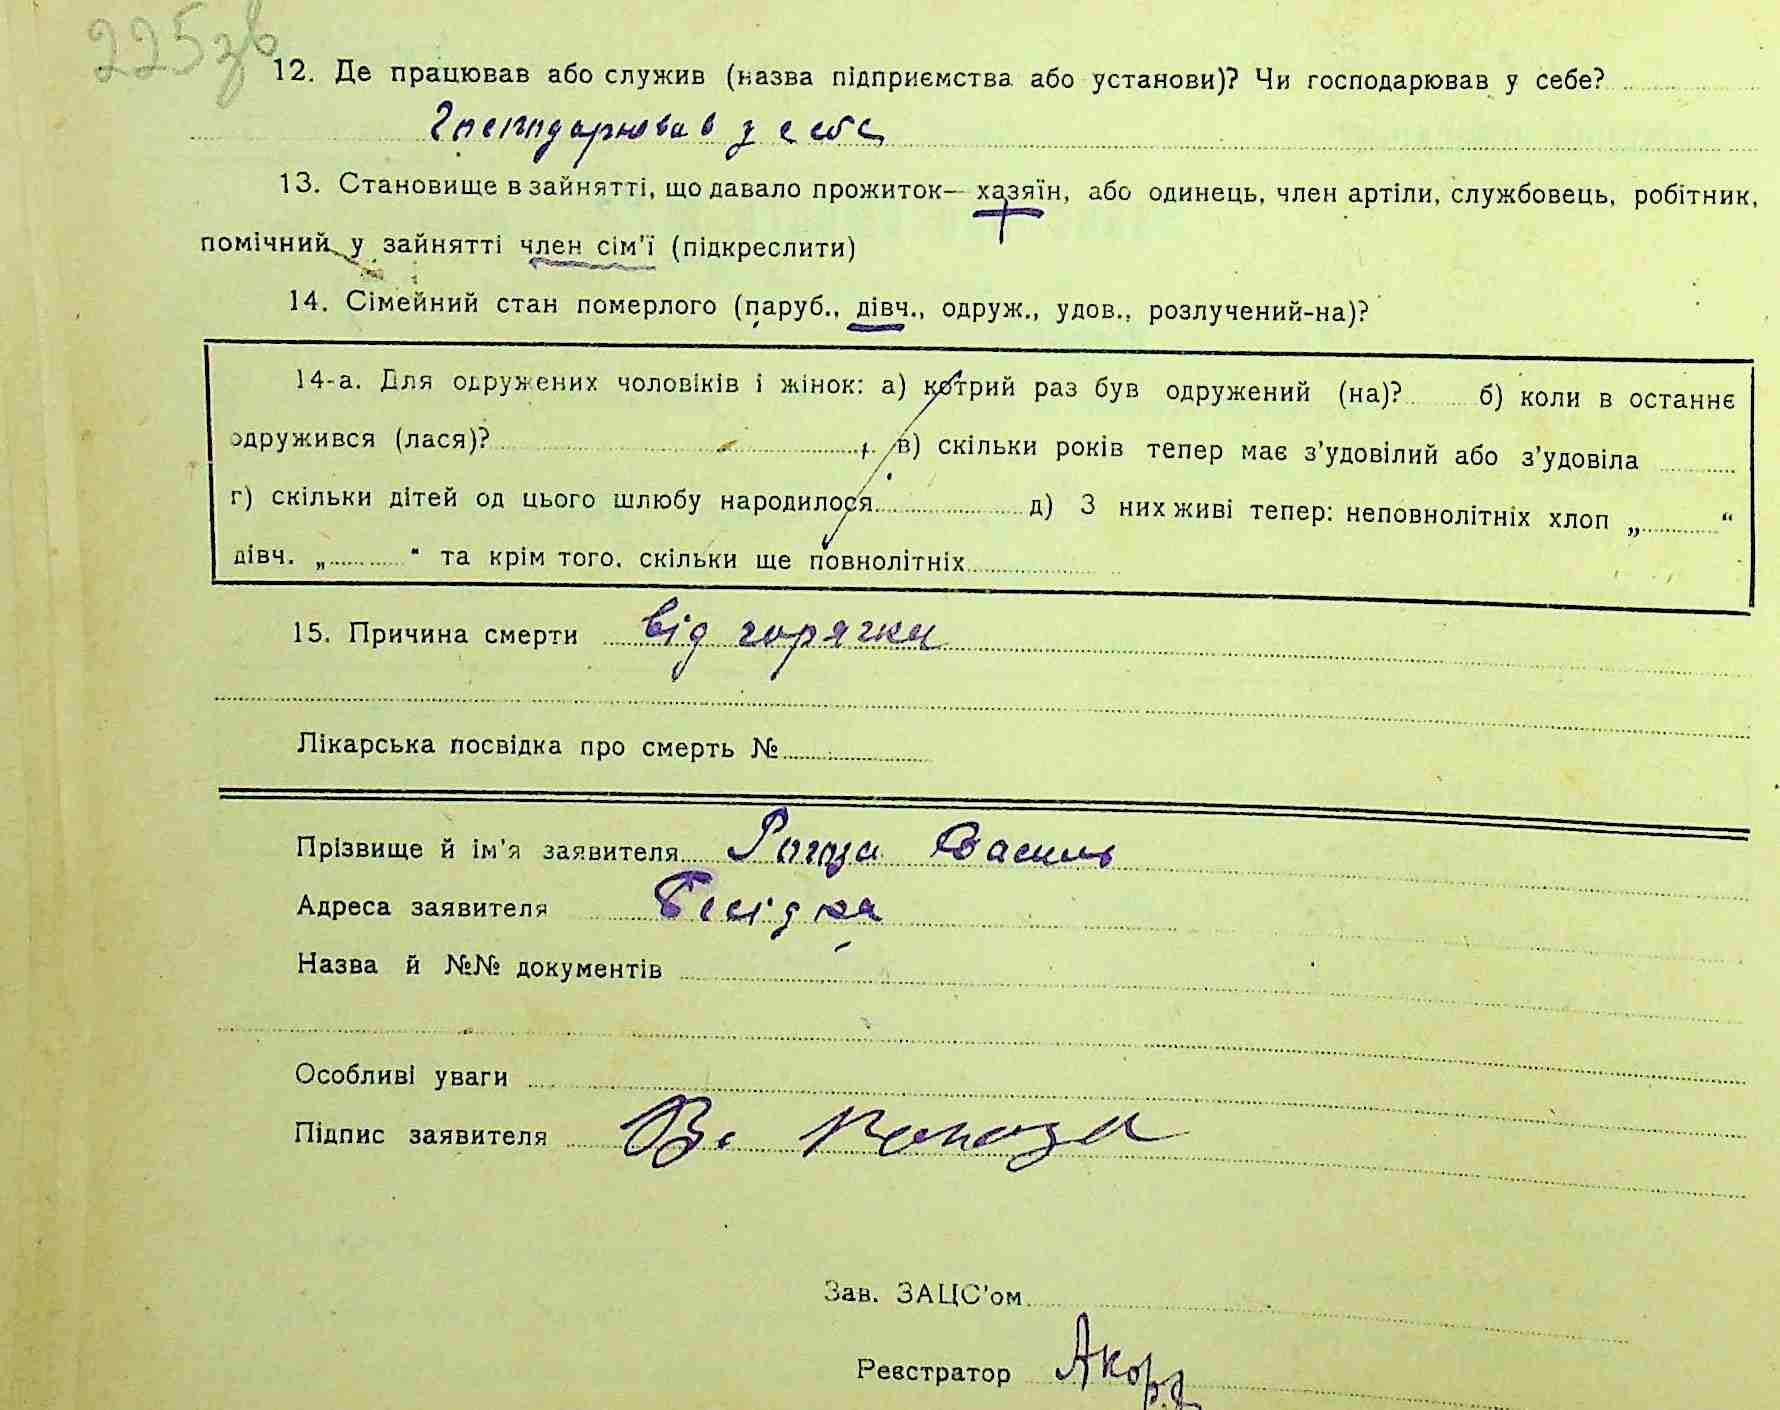 225зв
12. Де працював або служив (назва підприємства або установи)? Чи господарював у себе?
Господарював у себе
13. Становище в зайнятті, що давало прожиток— хазяїн, або одинець, член артіли, службовець, робітник,
помічний у зайнятті член сім'ї (підкреслити)
14. Сімейний стан померлого (паруб., дівч., одруж., удов., розлучений-на)?
14-а. Для одружених чоловіків і жінок: а) котрий раз був одружений (на)? б) коли в останнє
одружився (лася)? , в) скільки років тепер має з'удовілий або з'удовіла
г) скільки дітей од цього шлюбу народилося д) З них живі тепер: неповнолітніх хлоп „ “
дівч. „ “ та крім того. скільки ще повнолітніх
15. Причина смерти від горячки
Лікарська посвідка про смерть №
Прізвище й ім'я заявителя Рогоза Василь
Адреса заявителя Бесідка
Назва й №№ документів
Особливі уваги
Підпис заявителя
Зав. ЗАЦС'ом
Реєстратор